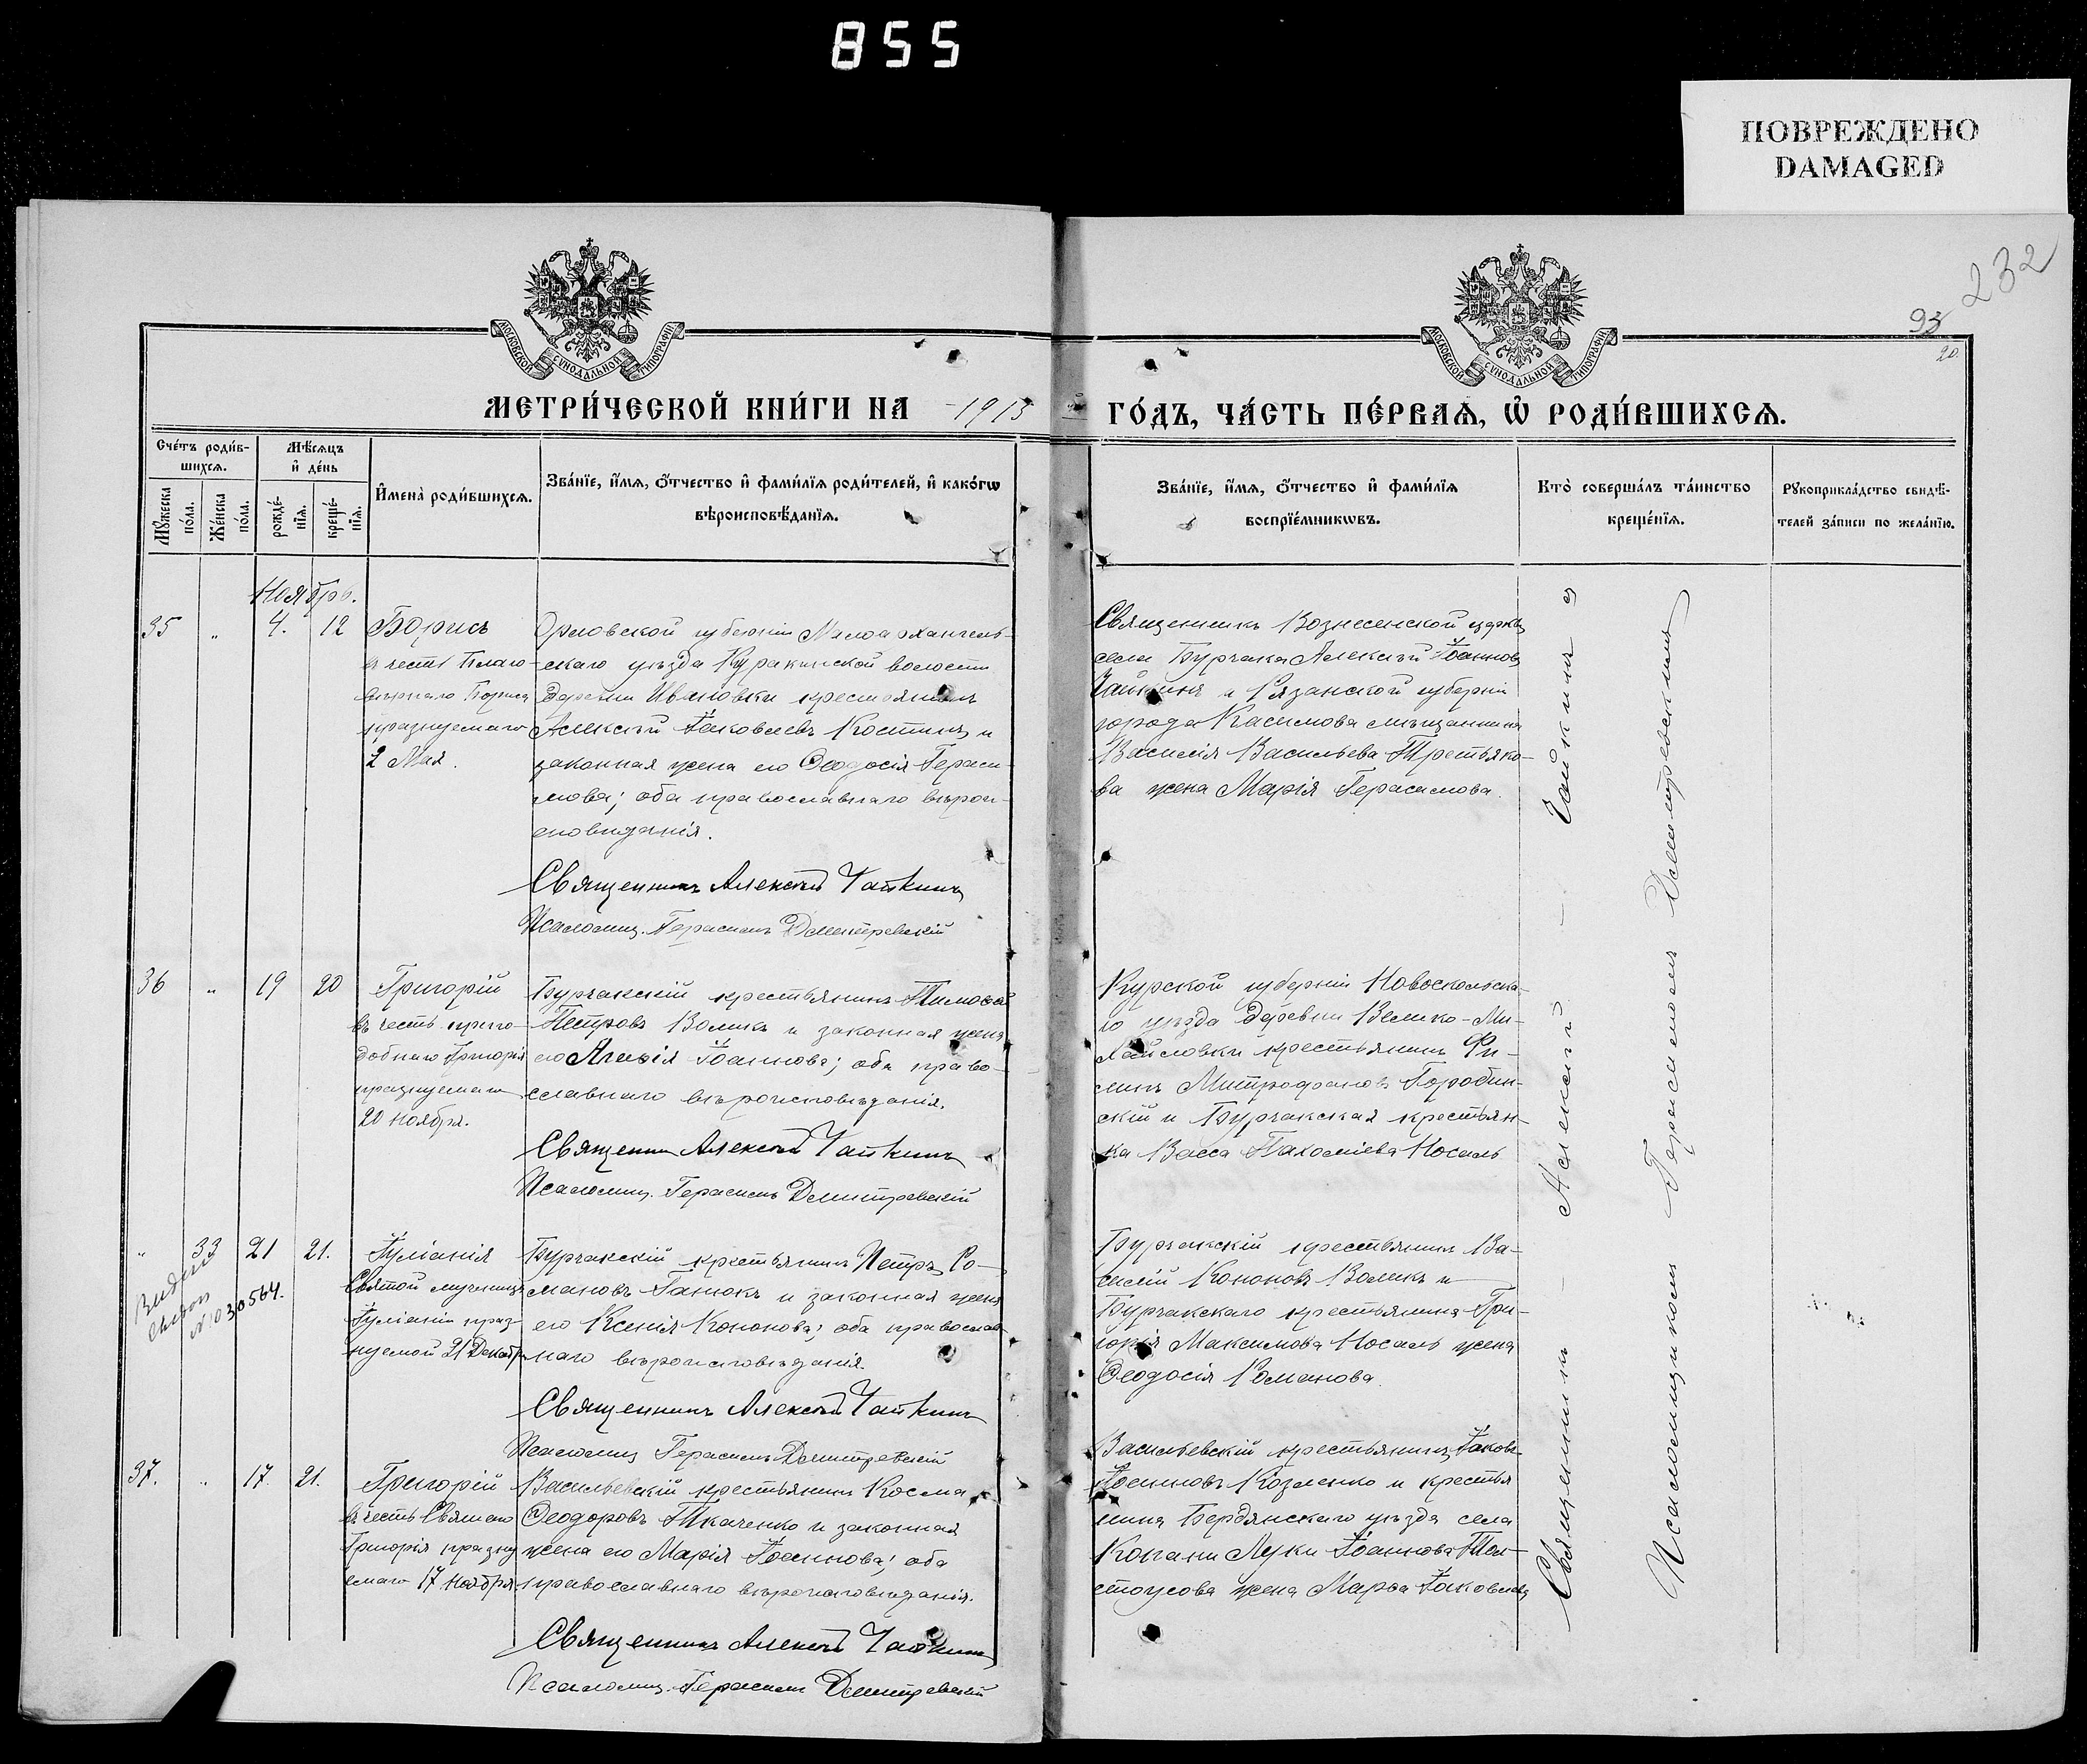 855
ПОВРЕЖДЕНО
DAMAGED
232
93
20.
МОСКОВСКОЙ СѴНОДАЛЬНОЙ ТИПОГРАФІИ
МОСКОВСКОЙ СѴНОДАЛЬНОЙ ТИПОГРАФІИ
МЕТРИ́ЧЕСКОЙ КНИ́ГИ НА 1913 ГО́ДЪ, ЧА́СТЬ ПЕ́РВАѦ, Ѡ҆ РОДИ́ВШИХСѦ.
Сче́тъ роди́в-
шихсѧ.
Мѣ́сѧцъ
и҆ де́нь
Мꙋ́жеска
по́ла.
Же́нска
по́ла.
рожде́-
нїѧ.
креще́-
нїѧ.
И҆мена̀ роди́вшихсѧ.
Зва́нїе, и҆́мѧ, ѻ҆́тчество и҆ фами́лїѧ роди́телей, и҆ како́гѡ
вѣроисповѣ́данїѧ.
Зва́нїе, и҆́мѧ, ѻ҆́тчество и҆ фами́лїѧ
воспрїе́мникѡвъ.
Кто̀ соверша́лъ та́инство
креще́нїѧ.
Рꙋкоприкла́дство свидѣ́-
телей за́писи по жела́нїю.
Ноябрь.
35 " 4. 12 Борисъ
въ честь Благо-
вернаго Бориса
празнуемаго
2 Мая.
Орловской губерніи Малоархангель-
скаго уѣзда Куракинской волости
деревни Ивановки крестьянинъ
Алексѣй Іаковлевъ Костинъ и
законная жена его Ѳеодосія Гераси-
мова; оба православнаго вѣрои-
сповиданія.
Священникъ Алексѣй Чайкинъ
Псаломщ. Герасимъ Дмитревскій
Священникъ Вознесенской церкви
села Бурчака Алексѣй Іоанновъ
Чайкинъ и Рязанской губерніи
города Касимова мѣщанина
Василія Васильева Третьяко-
ва жена Марія Герасимова.
36 " 19 20 Григорій
въ честь препо-
добнаго Григорія
празнуемаго
20 ноября.
Бурчакскій крестьянинъ Тимоѳей
Петровъ Воликъ и законная жена
его Агаѳія Іоаннова; оба право-
славнаго вѣроисповѣданія.
Священникъ Алексѣй Чайкинъ
Псаломщ. Герасимъ Дмитревскій
Курской губерніи Новоскольска-
го уѣзда деревни Велико-Ми-
хайловки крестьянинъ Фи-
липъ Митрофановъ Горобин-
скій и Бурчакская крестьян-
ка Васса Пахоміева Носаль
" 33 21 21. Іуліанія
Святой мученицы
Іуліаніи праз-
нуемой 21 Декабр
N 1030564.
Бурчакскій крестьянинъ Петръ Ро-
мановъ Ганюкъ и законная жена
его Ксенія Кононова; оба православ-
наго вѣроисповѣданія.
Священникъ Алексѣй Чайкинъ
Псаломщ. Герасимъ Дмитревскій
Бурчакскій крестьянинъ Ва-
силій Кононовъ Воликъ и
Бурчакскаго крестьянина Гри-
горія Максимова Носаль жена
Ѳеодосія Романова.
37. " 17. 21. Григорій
въ честь Святаго
Григорія празну
емаго 17 Ноября
Васильевскій крестьянинъ Косма
Ѳеодоровъ Ткаченко и законная
жена его Марія Іоаннова; оба
православнаго вѣроисповѣданія.
Священникъ Алексѣй Чайкинъ
Псаломщ. Герасимъ Дмитревскій
Васильевскій крестьянинъ Іаковъ
Іоанновъ Козленко и крестья
нина Бердянскаго уѣзда села
Копани Луки Іоаннова Тол-
стоусова жена Марѳа Іаковлева
Священникъ Алексѣй Чайкинъ и
Псаломщикомъ Герасимомъ Дмитревскимъ